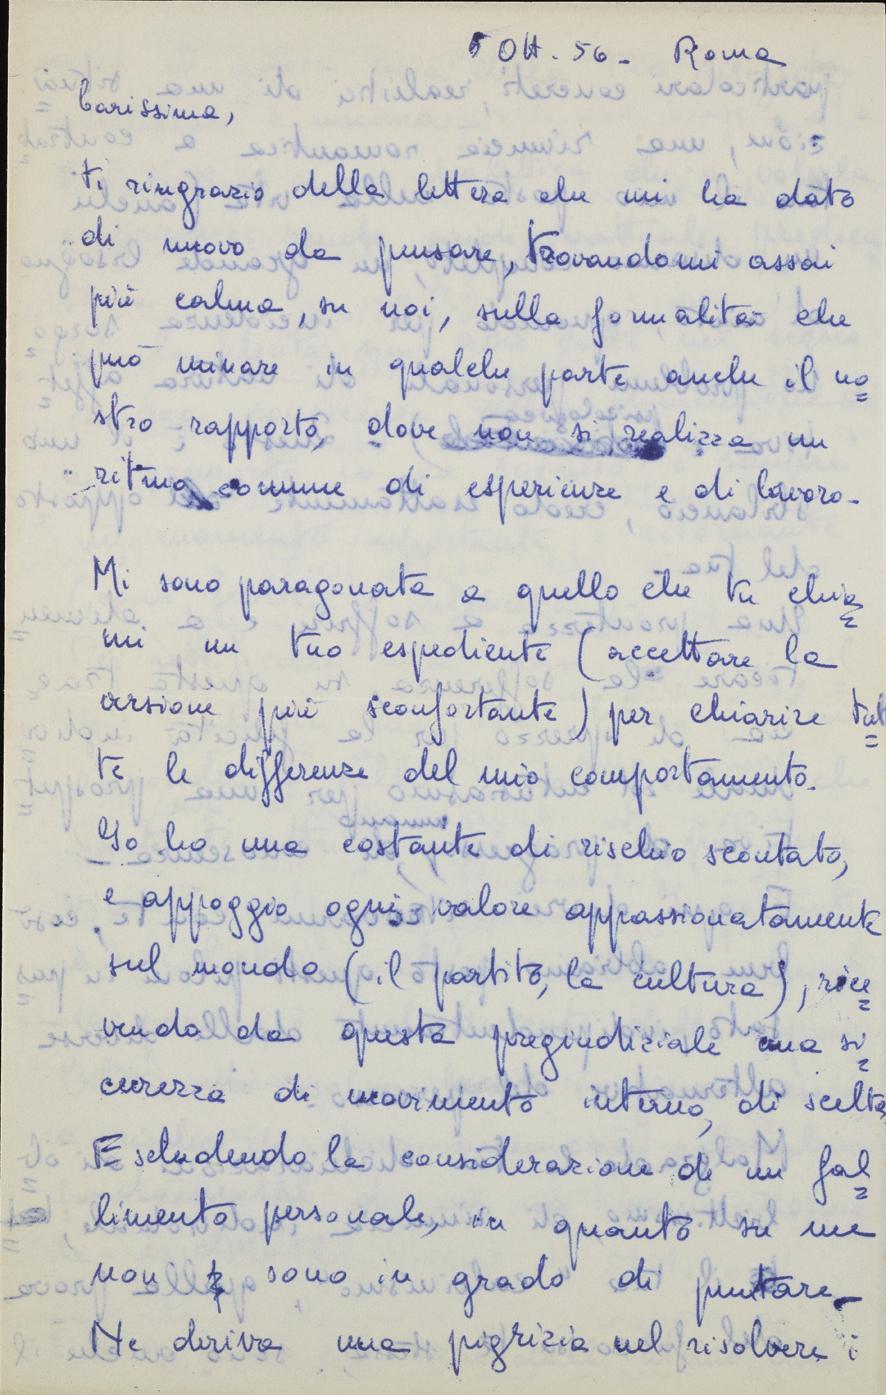 5 Ott. 56 - Roma
Carissima,
ti ringrazio della lettera che mi ha dato
di nuovo da pensare, trovandomi assai
più calma, su noi, sulla formalità che
può minare in qualche parte anche il no=
stro rapporto, dove non si realizza un
ritmo comune di esperienze e di lavoro -
Mi sono paragonata a quello che tu chia=
mi un tuo espediente (accettare la
versione più sconfortante) per chiarire tut=
te le differenze del mio comportamento.
Io ho una costante di rischio scontato,
e appoggio ogni valore appassionatamente
sul mondo (il partito, la cultura), rice=
vendo da questa pregiudiziale una si=
curezza di movimento interno, di scelta
Escludendo la considerazione di un fal=
limento personale, in quanto su me
non sono in grado di puntare -
Ne deriva una pigrizia nel risolvere i